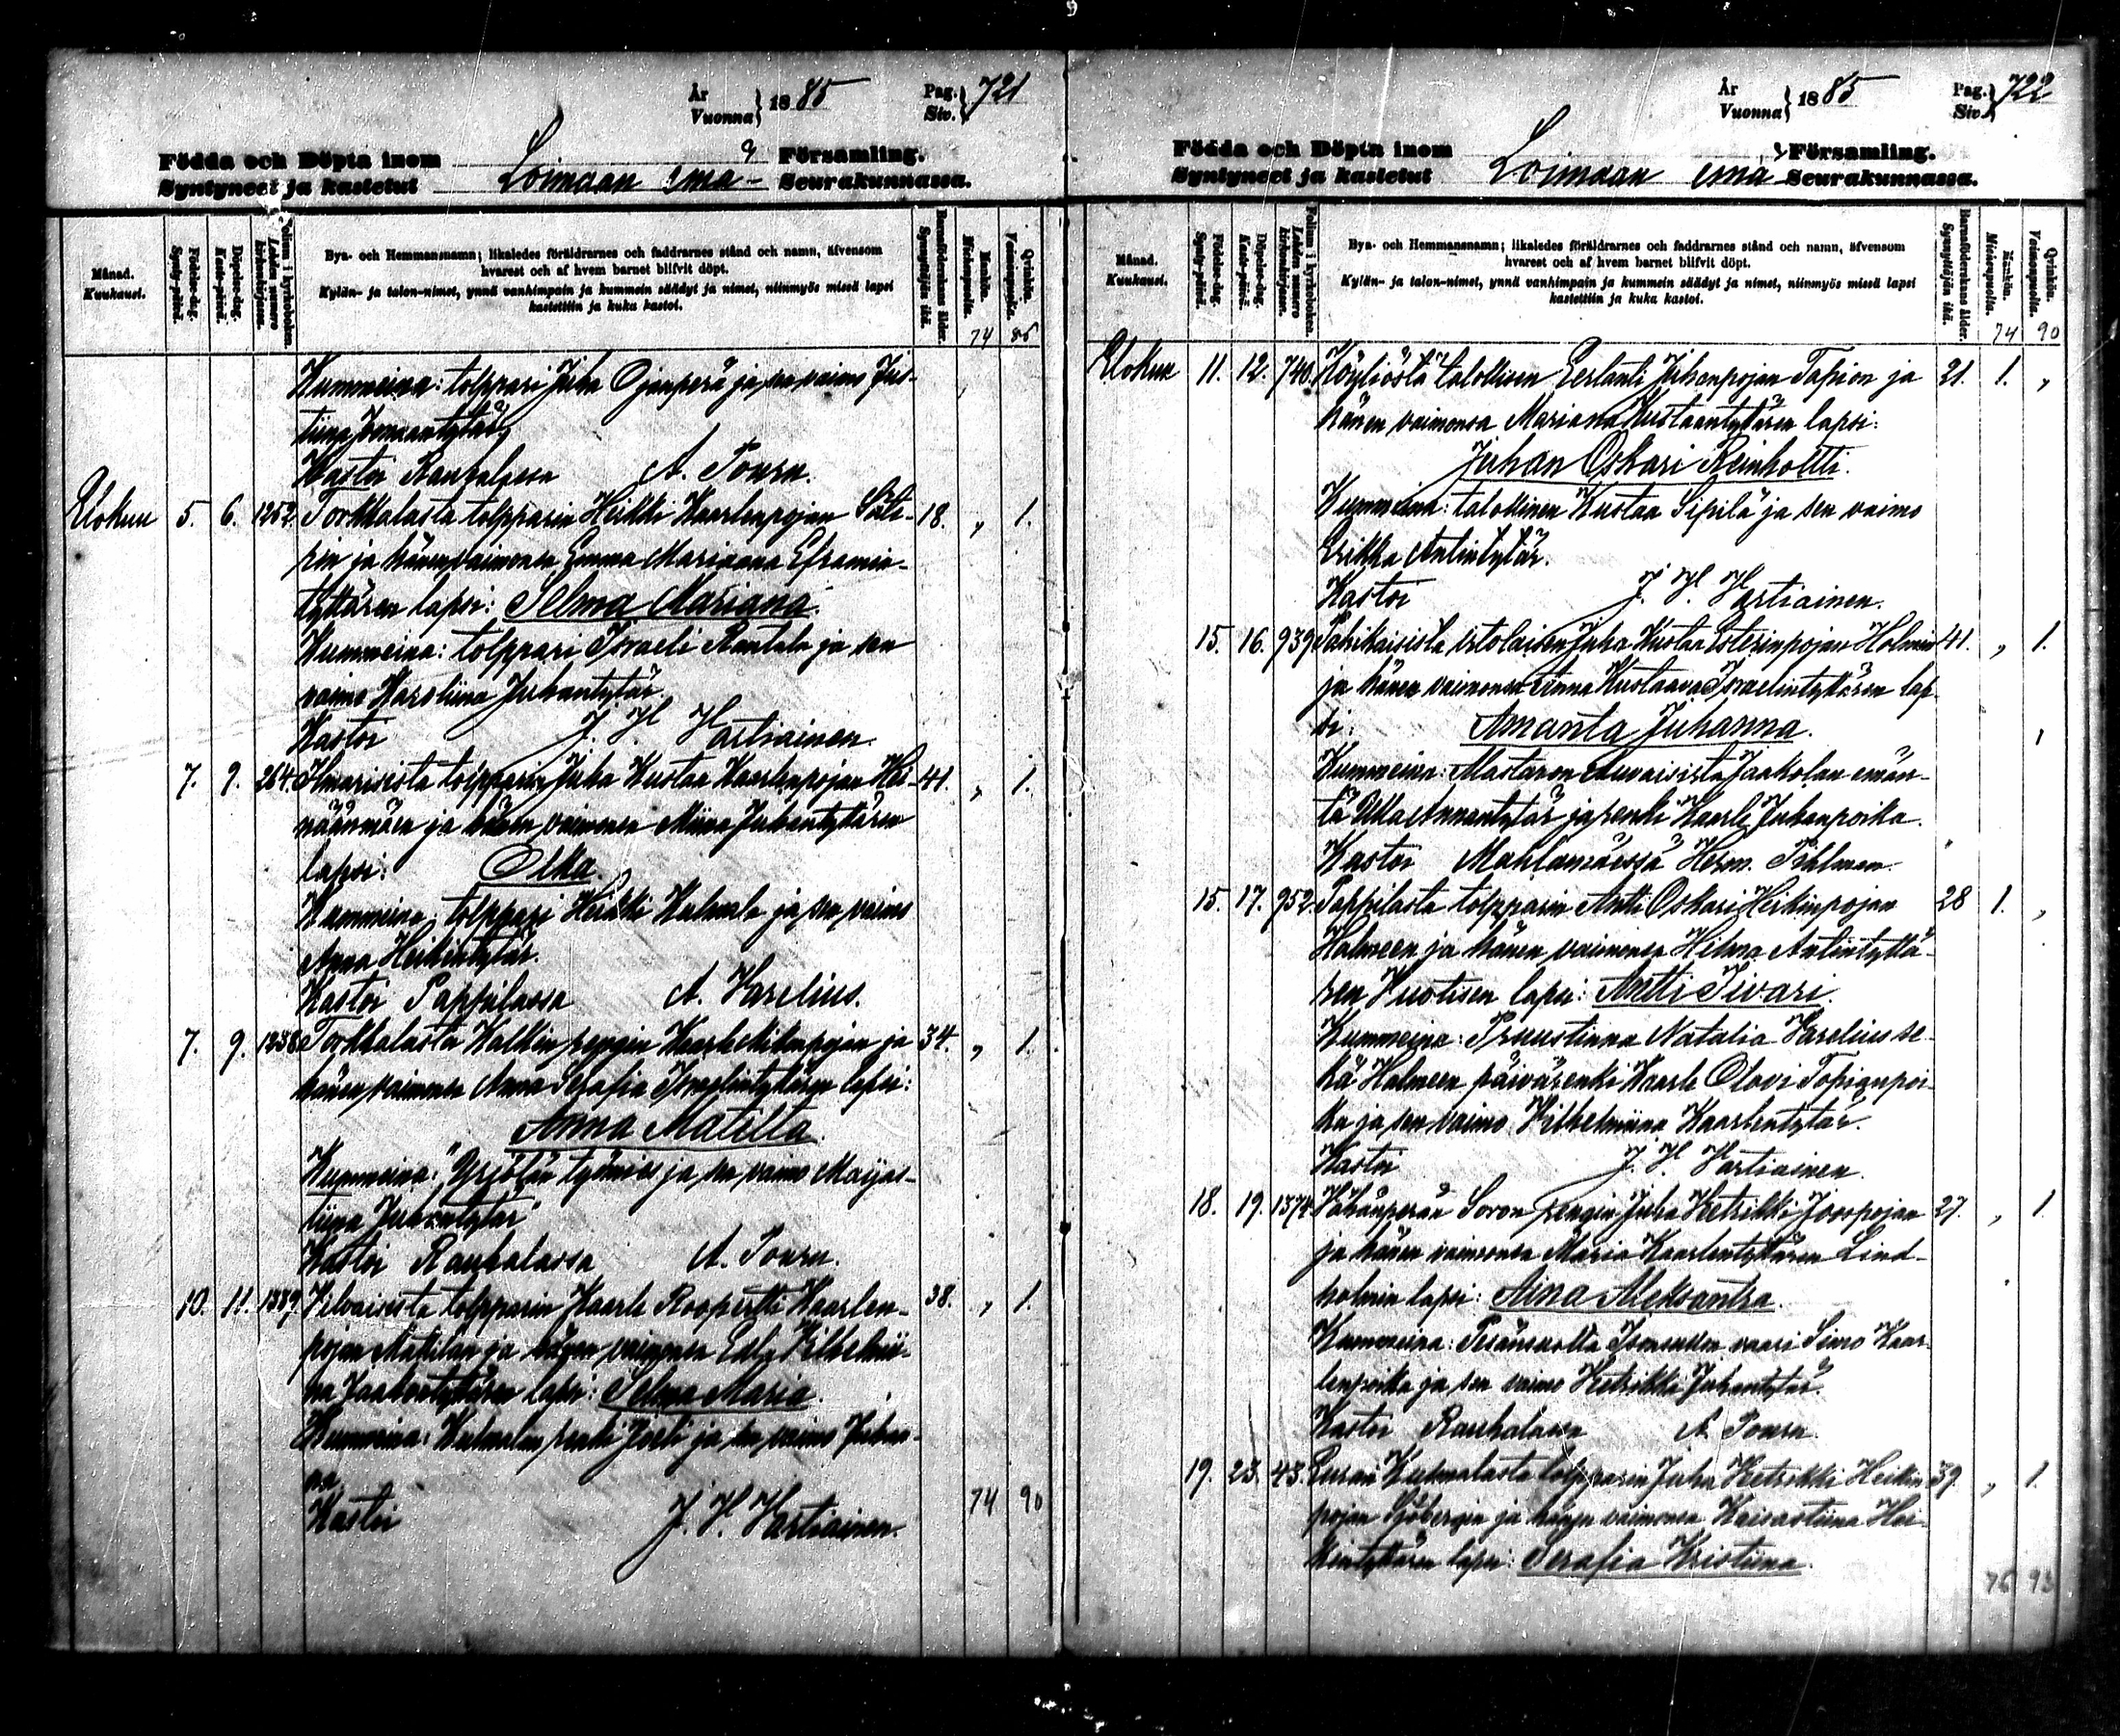 År
Vuonna } 1885
Pag.
Siv. } 721
Födda och Döpta inom
Syntyneet ja kastetut Loimaan emä- Församling.
Seurakunnassa.
Månad.
Kuukausi.
Födelse-dag.
Synty-päivä.
Döpelse-dag.
Kaste-päivä.
Folium i kyrkoboken.
Lehden numero kirkonkirjassa.
Bya- och Hemmansnamn; likaledes föräldrarnes och faddrarnes stånd och namn, äfvensom
hvarest och af hvem barnet blifvit döpt.
Kylän- ja talon-nimet, ynnä vanhimpain ja kummein säädyt ja nimet, niinmyös missä lapsi
kastettiin ja kuka kastoi.
Barnföderskans ålder.
Synnyttäjän ikä.
Mankön.
Miehenpuolia.
Qvinkön.
Vaimonpuolia.
74 86
Kummeina: tolppari Juha Ojanperä ja sen vaimo Jus-
tiina Joonaantytär,
Kastoi Rauhalassa A. Touru.
Elokuu 5. 6. 1252. Torkkalasta tolpparin Heikki Kaarlenpojan 18. „ 1.
rin ja hänen vaimonsa Emma Mariaana Eframin-
tyttären lapsi: Selma Mariana.
Kummeina: tolppari Israeli Rantala ja sen
vaimo Karoliina Juhantytär.
Kastoi J. V. Vartiainen.
7. 9. 264. Ilmarisista tolpparin Juha Kustaa Kaarlenpojan Hei- 41. „ 1.
näänmäen ja hänen vaimonsa Miina Juhantyttären
lapsi: Olka.
Kummeina: tolppari Heikki Kulmala ja sen vaimo
Anna Heikintytär.
Kastoi Pappilassa A. Varelius.
7. 9. 1238. Torkkalasta rengin Kaarle ja 34. „ 1.
hänen vaimonsa Anna Serafia Israelintyttären lapsi:
Anna Matilta.
Kummeina: Yrjölän työmies ja sen vaimo Maijas-
tiina Juhontytär
Kastoi Rauhalassa A. Touru.
10. 11. 1389. Vilvaisista tolpparin Kaarle Roopertti Kaarlen- 38. „ 1.
pojan Mattilan ja hänen vaimonsa Edla Vilhelmii-
na Jaakontyttären lapsi: Selma Maria.
Kummeina: Kulmalan renki Joeli ja sen vaimo Juhan-
na
Kastoi J. V. Vartiainen.
74 90
År
Vuonna } 1885
Pag.
Siv. } 722
Födda och Döpta inom
Syntyneet ja kastetut Loimaan emä Församling.
Seurakunnassa.
Månad.
Kuukausi.
Födelse-dag.
Synty-päivä.
Döpelse-dag.
Kaste-päivä.
Folium i kyrkoboken.
Lehden numero kirkonkirjassa.
Bya- och Hemmansnamn; likaledes föräldrarnes och faddrarnes stånd och namn, äfvensom
hvarest och af hvem barnet blifvit döpt.
Kylän- ja talon-nimet, ynnä vanhimpain ja kummein säädyt ja nimet, niinmyös missä lapsi
kastettiin ja kuka kastoi.
Barnföderskans ålder.
Synnyttäjän ikä.
Mankön.
Miehenpuolia.
Qvinkön.
Vaimonpuolia.
74 90
Elokuu 11. 12. 740. Köyliöstä talollisen Eerlanti Juhanpojan Tapion ja 21. 1. „
hänen vaimonsa Mariana Kustaantyttären lapsi:
Juhan Oskari Reinhollti.
Kummeina: talollinen Kustaa Sipilä ja sen vaimo
Erikka Antintytär.
Kastoi J. V. Vartiainen.
15. 16. 939. itsolaisen Juha Kustaa Esterinpojan Holmin 41. „ 1.
ja hänen vaimonsa Anna Kustaava Israelintyttären lap-
si: Amanta Juhanna.
Kummeina: Mastaron Jaakolan emän-
tä Ulla Annantytär ja renki Kaarle Juhanpoika.
Kastoi Mahlamäessä Herm. Pihlman.
15. 17. 952. Pappilasta tolpparin Antti Oskari Heikinpojan 28 1. „
Holmeen ja hänen vaimonsa Hilma Antintyttä-
ren Vuotisen lapsi: Antti Iivari.
Kummeina: Pruustinna Natalia Varelius se-
kä Holmeen päivärenki Kaarle Olavi Topianpoi-
ka ja sen vaimo Vilhelmiina Kaarlentytär.
Kastoi J. V. Vartiainen.
18. 19. 1374. Vähänperän Soron rengin Juha Hetrikki Joospojan 27. „ 1.
ja hänen vaimonsa Maria Kaarlentyttären Lind-
holmin lapsi: Aina Aleksantra.
Kummeina: vaari Simo Kaar-
lenpoika ja sen vaimo Hetrikka Juhantytär.
Kastoi Rauhalassa A. Touru.
19. 23. 43. Kulmalasta tolpparin Juha Hetrikki Heikin- 39. „ 1.
pojan Sjöbergin ja hänen vaimonsa Kaisastiina Hei-
kintyttären lapsi: Serafia Kristiina.
76 93